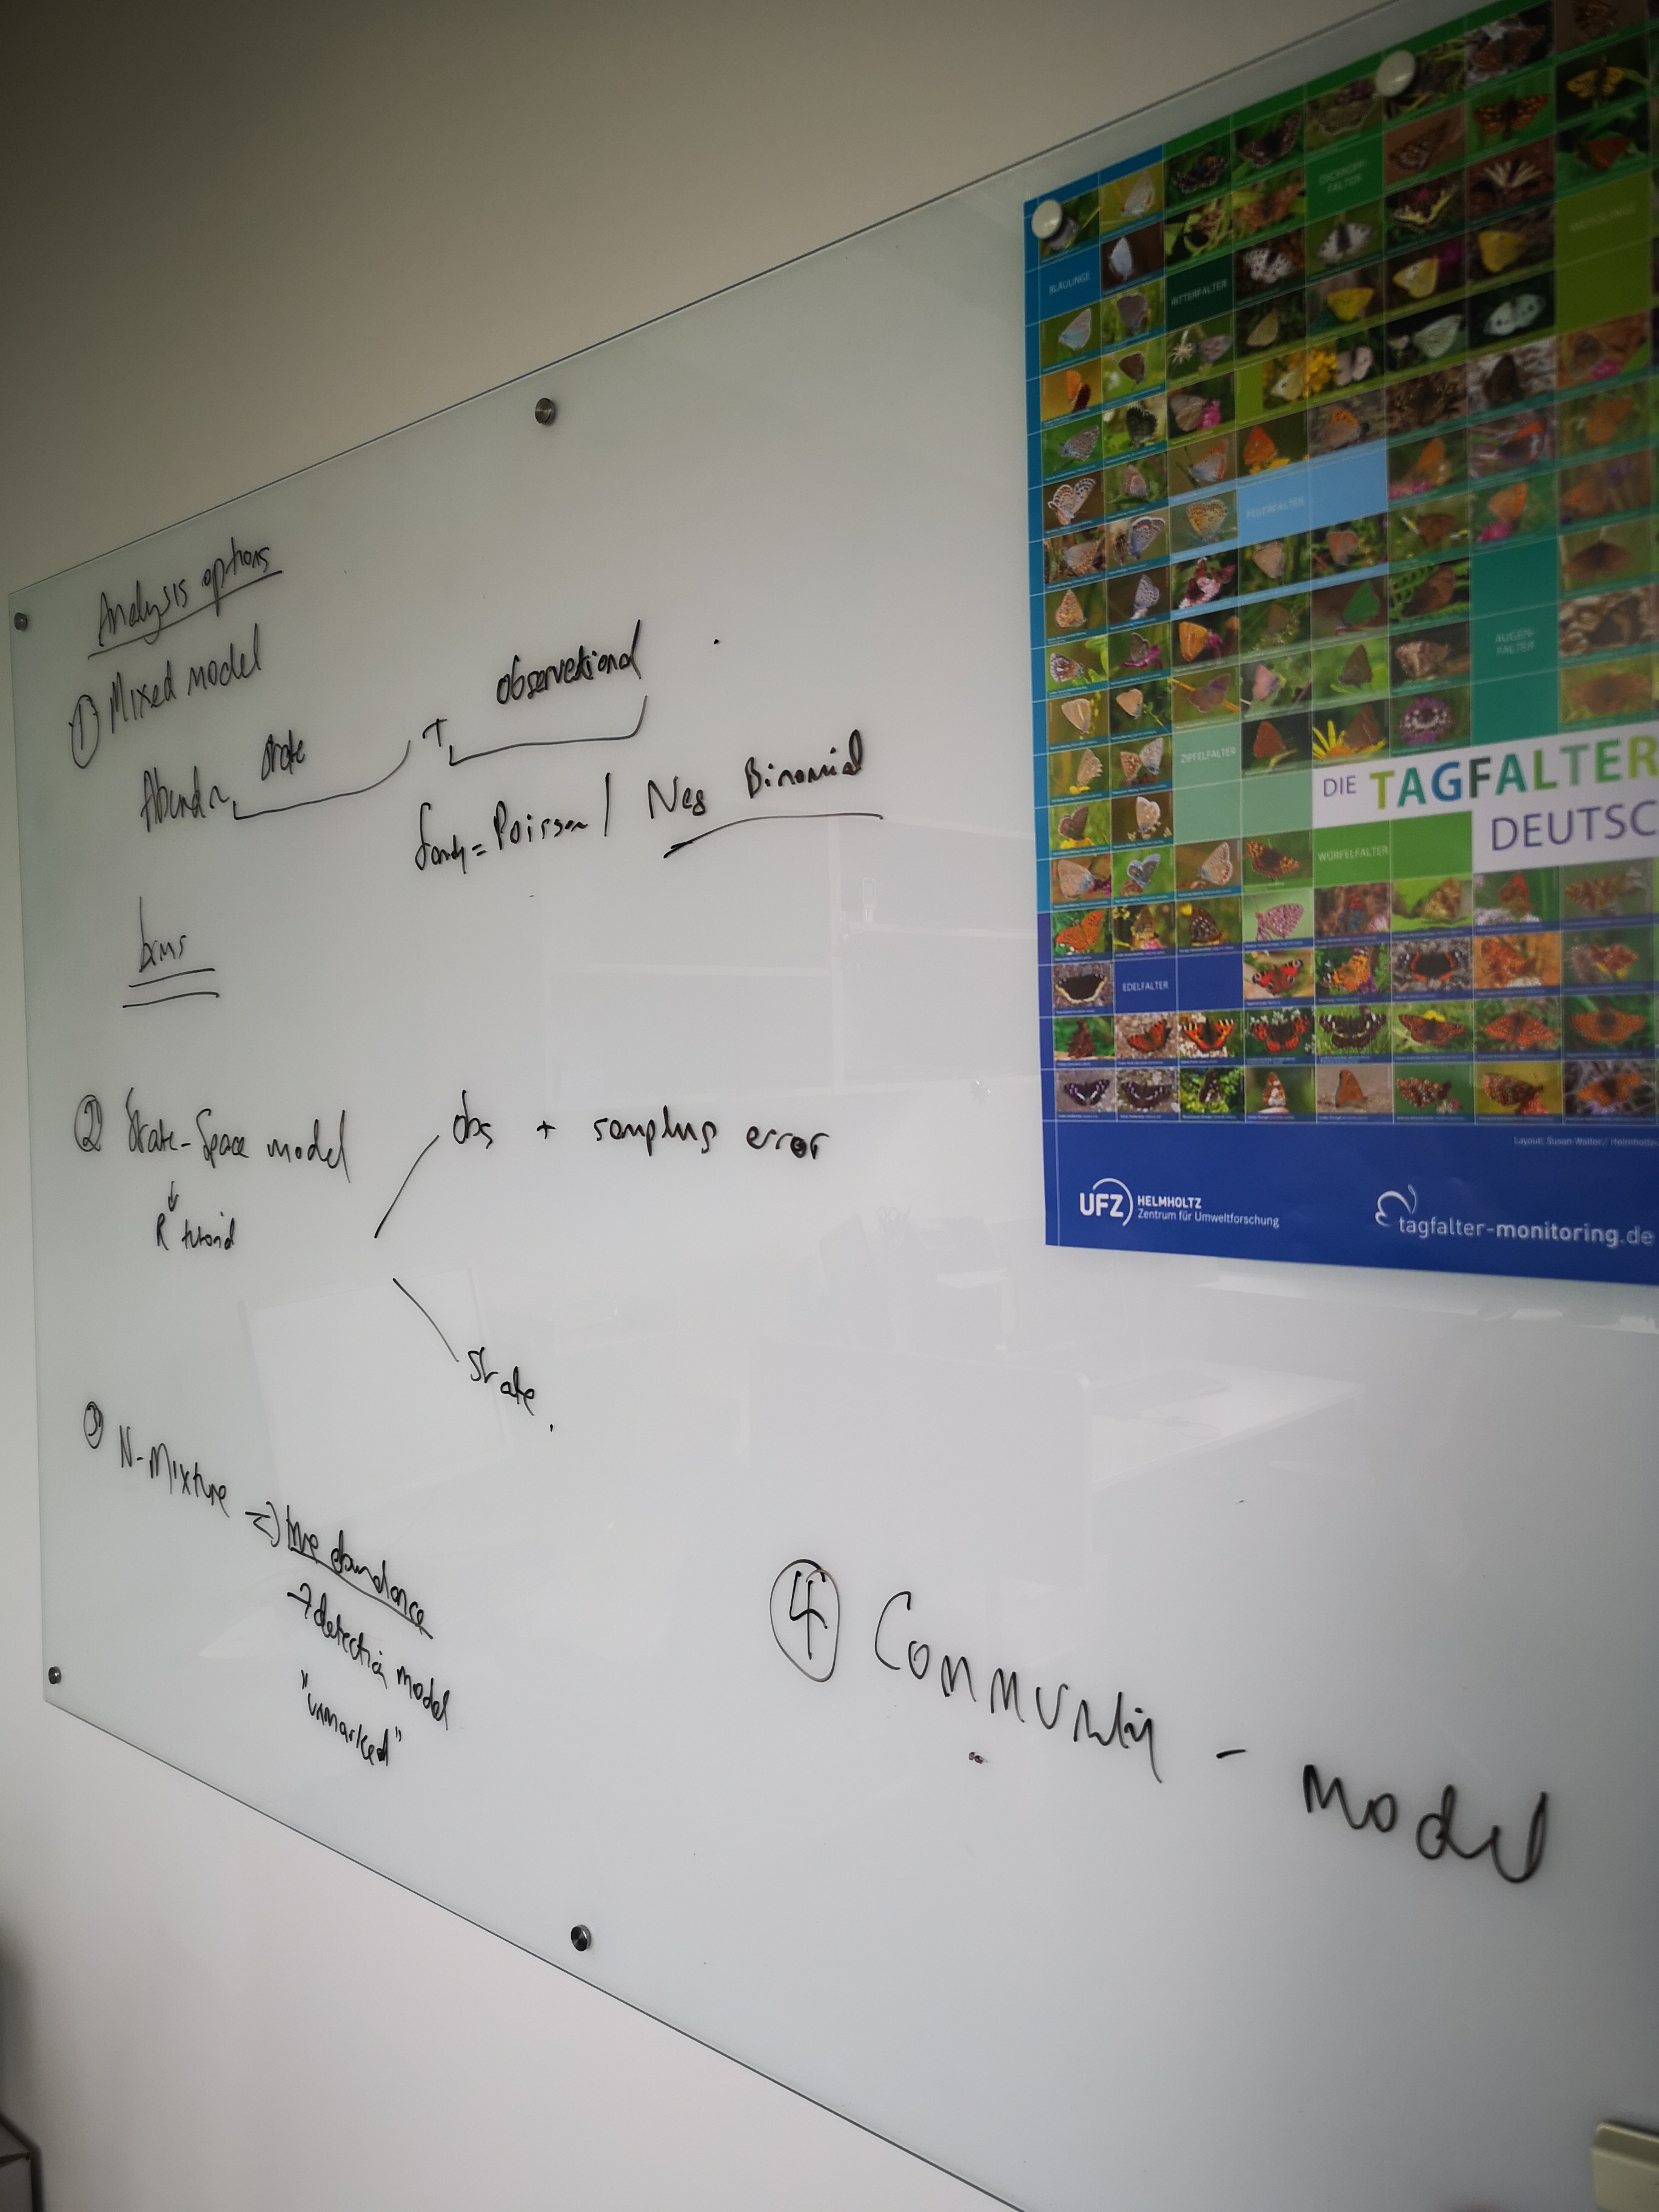 Analysis options
① Mixed model
Abund ~ state + observational
family = Poisson / Neg Binomial
brms
② State-Space model
↓
R tutorial
obs + sampling error
state
③ N-Mixture => true abundance
→ detection model
"unmarked"
④ Community - model
BLÄULINGE
RITTERFALTER
DICKKOPF-
FALTER
FEUERFALTER
AUGEN-
FALTER
ZIPFELFALTER
WÜRFELFALTER
EDELFALTER
DIE TAGFALTER
DEUTSC
Layout: Susan Walter/ Helmholtz
UFZ HELMHOLTZ
Zentrum für Umweltforschung
tagfalter-monitoring.de